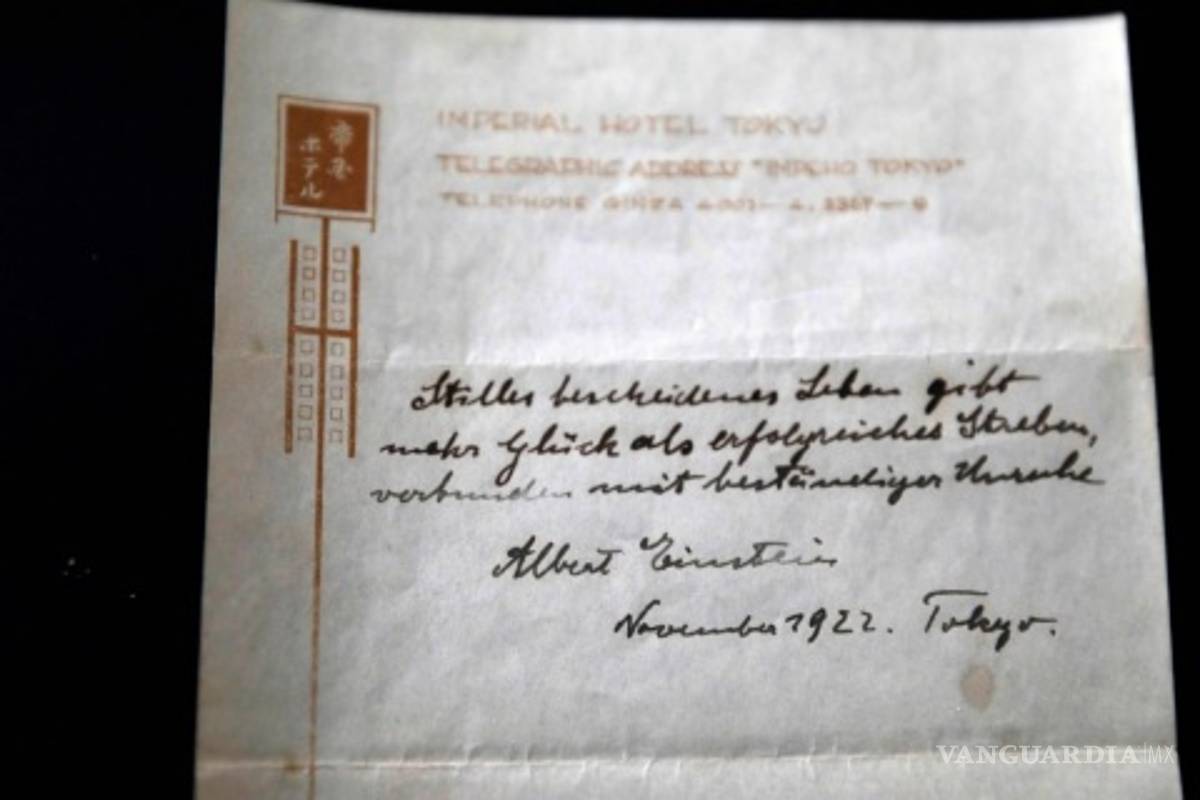 帝国
ホテル
IMPERIAL HOTEL TOKYO
TELEGRAPHIC ADDRESS "IMPEHO TOKYO"
TELEPHONE GINZA
Stilles bescheidenes Leben gibt
mehr Glück als erfolgreiches Streben,
verbunden mit beständiger Unruhe
Albert Einstein
November 1922. Tokyo.
VANGUARDIA|MX